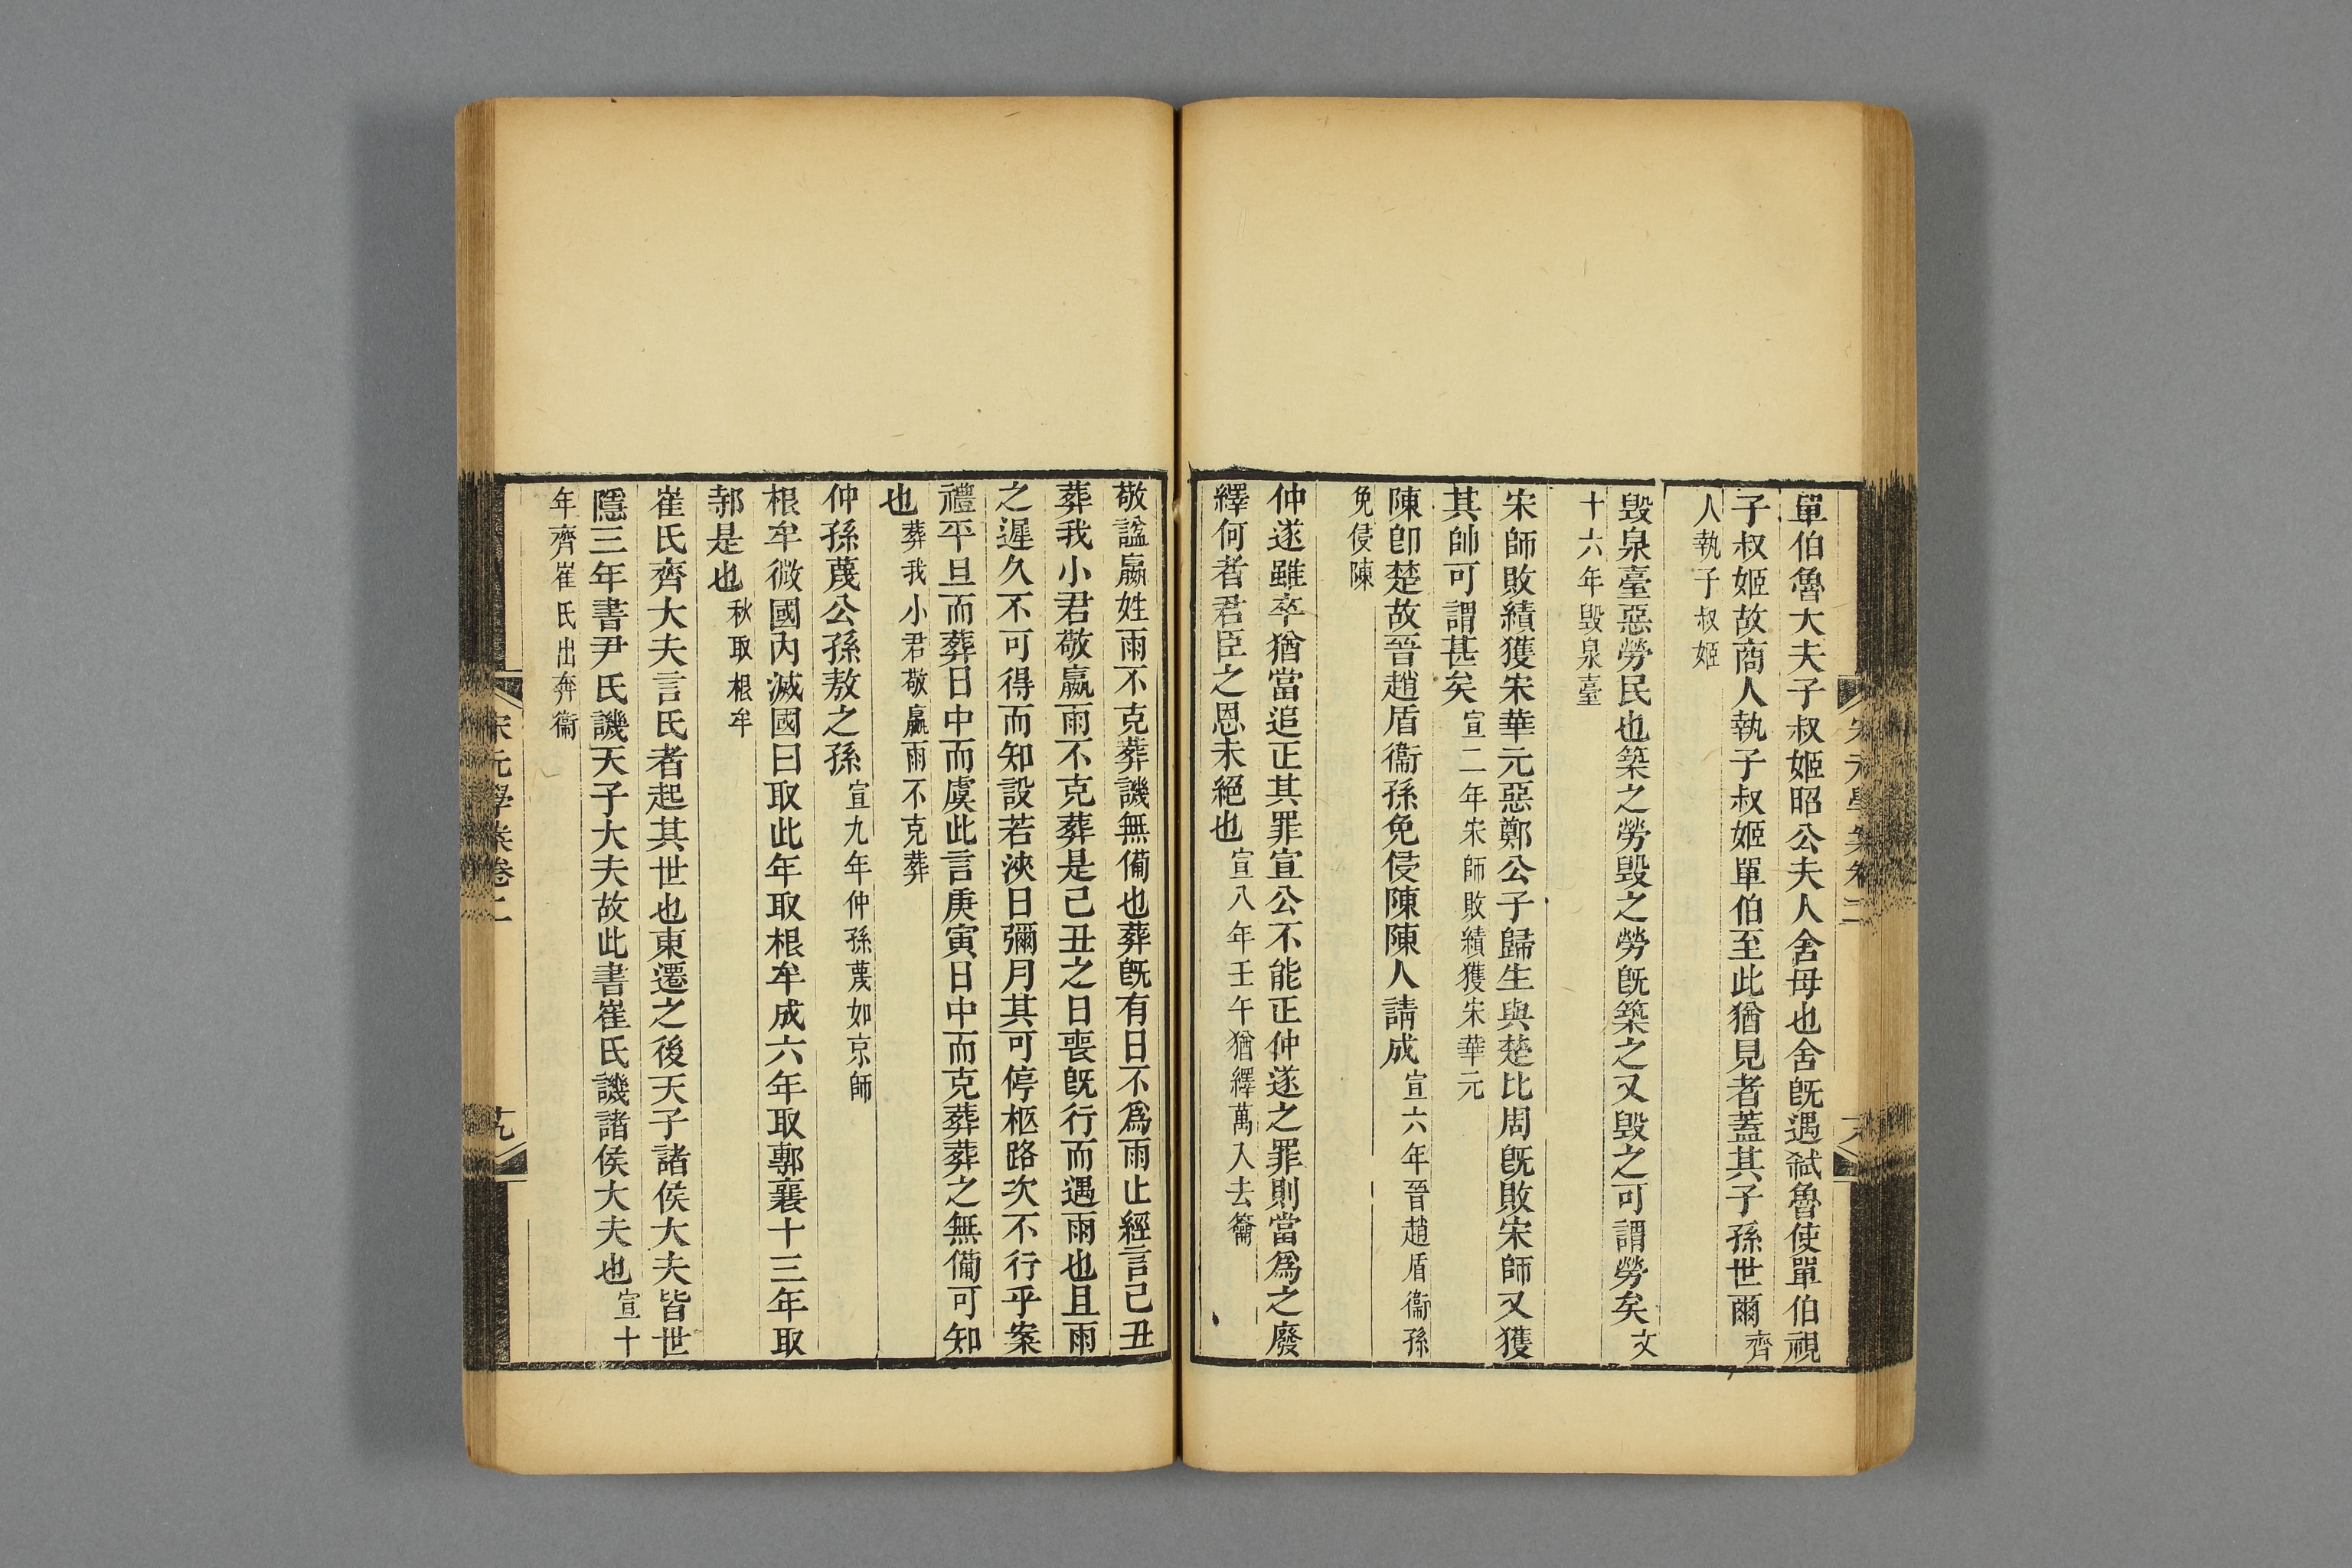 單伯魯大夫子叔姬昭公夫人舍母也舍旣遇弑魯使單伯視
子叔姬故商人執子叔姬單伯至此猶見者蓋其子孫世爾齊
人執子叔姬
毀泉臺惡勞民也築之勞毀之勞旣築之又毀之可謂勞矣文
十六年毀泉臺
宋師敗績獲宋華元惡鄭公子歸生與楚比周旣敗宋師又獲
其帥可謂甚矣宣二年宋師敗績獲宋華元
陳卽楚故晉趙盾衞孫免侵陳陳人請成宣六年晉趙盾衞孫
免侵陳
仲遂雖卒猶當追正其罪宣公不能正仲遂之罪則當爲之廢
繹何者君臣之恩未絕也宣八年壬午猶繹萬入去籥
敬諡嬴姓雨不克葬譏無備也葬旣有日不爲雨止經言己丑
葬我小君敬嬴雨不克葬是己丑之日喪旣行而遇雨也且雨
之遲久不可得而知設若浹日彌月其可停柩路次不行乎案
禮平旦而葬日中而虞此言庚寅日中而克葬葬之無備可知
也葬我小君敬嬴雨不克葬
仲孫蔑公孫敖之孫宣九年仲孫蔑如京師
根牟微國內滅國曰取此年取根牟成六年取鄟襄十三年取
邿是也秋取根牟
崔氏齊大夫言氏者起其世也東遷之後天子諸侯大夫皆世
隱三年書尹氏譏天子大夫故此書崔氏譏諸侯大夫也宣十
年齊崔氏出奔衞
宋元學案卷二
十九